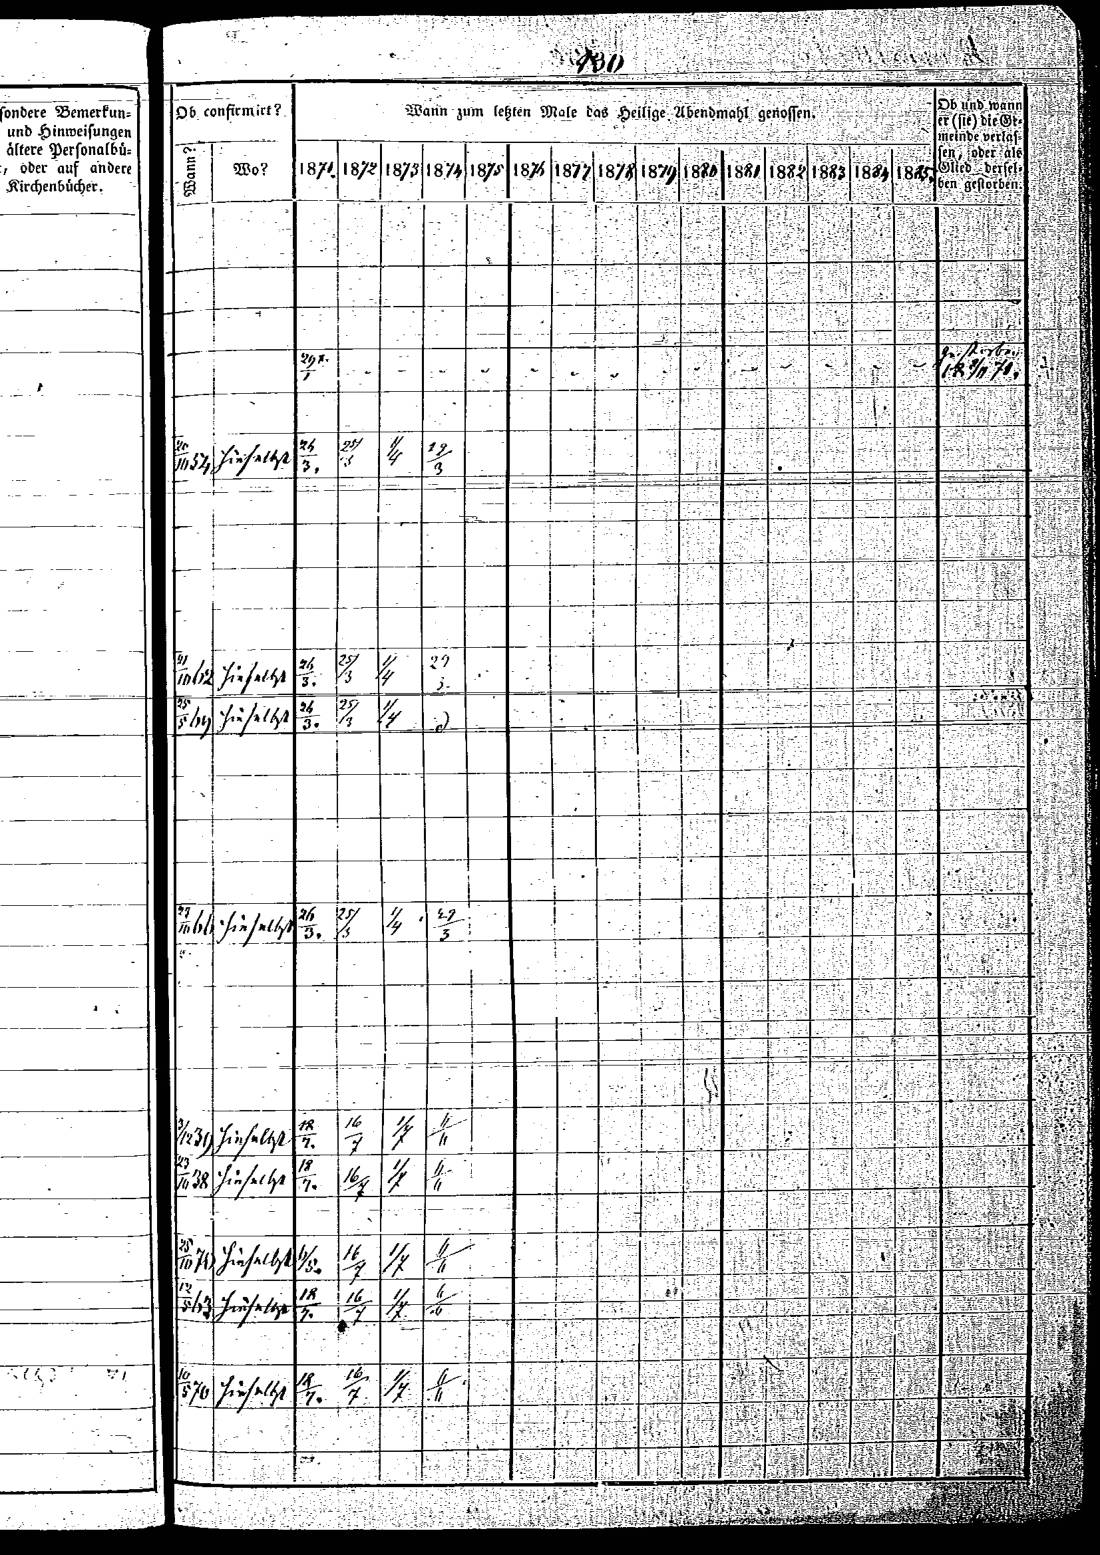 130
sondere Bemerkun-
und Hinweisungen
ältere Personalbü-
, oder auf andere
Kirchenbücher.
Ob confirmirt?
Wann?
Wo?
Wann zum letzten Male das Heilige Abendmahl genossen.
1871. 1872 1873 1874 1875 1876 1877 1878 1879 1880 1881 1882 1883 1884 1885.
Ob und wann
er (sie) die Ge-
meinde verlas-
sen, oder als
Glied dersel-
ben gestorben.
gestorben
54 hieselbst 26/3. 25/3 1/4 29/3
21/10 62 hieselbst 26/3. 25/3 1/4 29/3.
25/5 69 hieselbst 26/3. 25/3 1/4
66 hieselbst 26/3. 25/3 1/4 29/3
3/12 39 hieselbst 18/7. 16/7 1/7 6/6
23/10 38 hieselbst 18/7. 16/7 1/7 6/6
25/10 70 hieselbst 6/5. 16/7 1/7 6/6
12/5 63 hieselbst 18/7. 16/7 1/7 6/6
10/5 70 hieselbst 18/7. 16/7 1/7 6/6